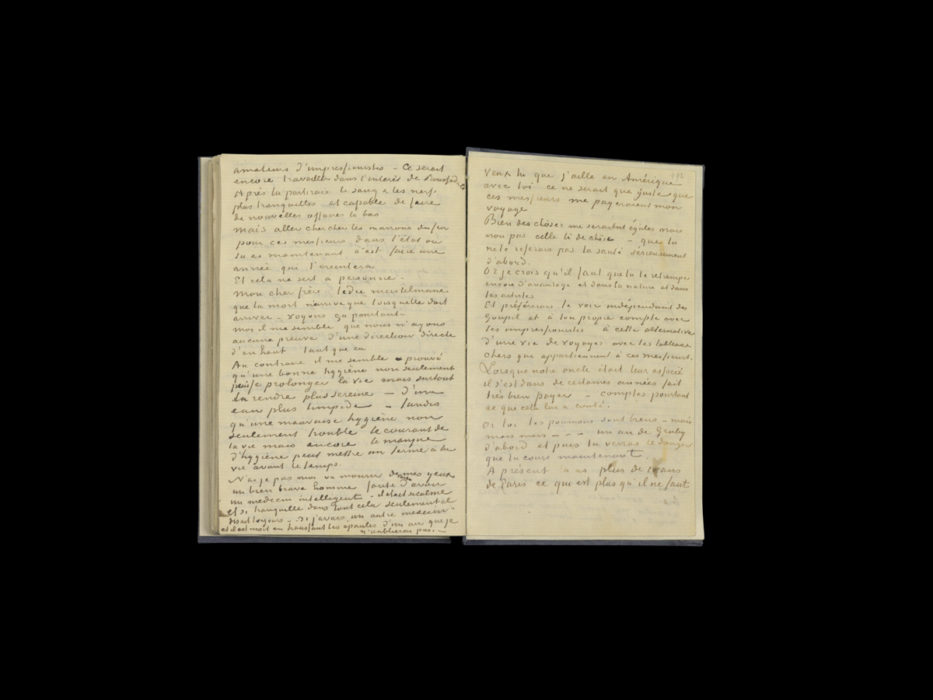 amateurs d'impressionistes – Ce serait
encore travailler dans l'intérêt de
Après tu partirais le sang & les nerfs
plus tranquilles et capable de faire
de nouvelles affaires là bas
mais aller chercher les marrons du feu
pour ces messieurs dans l'état où
tu es maintenant c'est faire une
année qui t'éreintera
Et cela ne sert à personne –
Mon cher frère l'idée musulmane
que la mort n'arrive que lorsqu'elle doit
arriver – voyons ça pourtant –
moi il me semble que nous n'ayons
aucune preuve d'une direction directe
d'en haut tant que ça
Au contraire il me semble prouvé
qu'une bonne hygiène non seulement
puisse prolonger la vie mais surtout
la rendre plus sereine – d'une
eau plus limpide – tandis
qu'une mauvaise hygiène non
seulement trouble le courant de
la vie mais encore le manque
d'hygiène peut mettre un terme à la
vie avant le temps.
N'ai je pas moi vu mourir devant mes yeux
un bien brave homme faute d'avoir
un médecin intelligent – il était si calme
et si tranquille dans tout cela seulement il
disait toujours – si j'avais un autre médecin –
et il est mort en haussant les épaules d'un air que je
n'oublierai pas. –
Veux tu que j'aille en Amérique
avec toi ce ne serait que juste que
ces messieurs me payeraient mon
voyage
Bien des choses me seraient égales mais
non pas celle là de chose – que tu
ne te referais pas la santé sérieusement
d'abord.
Or je crois qu'il faut que tu te retrempe
encore d'avantage et dans la nature et dans
les artistes
Et préférerais te voir indépendant des
Goupil et à ton propre compte avec
les impressionistes à cette alternative
d'une vie de voyages avec les tableaux
chers que appartiennent à ces messieurs.
Lorsque notre oncle était leur associé
il s'est dans de certaines années fait
très bien payer – comptes pourtant
ce que cela lui a coûté.
Or toi tes poumons sont bons – mais
mais mais – – – un an de Gruby
d'abord et puis tu verras ce danger
que tu cours maintenant.
A présent tu as plus de 10 ans
de Paris ce que est plus qu'il ne faut.